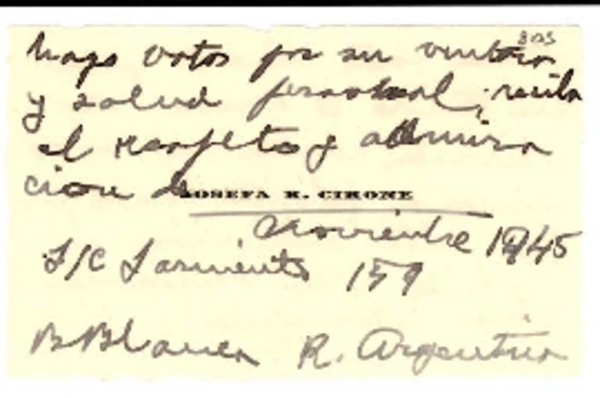 hago votos por su ventura
y salud personal, reciba
el respeto y admira
cion de JOSEFA K. CIRONE
Noviembre 1945
S/C Sarmiento 159
B Blanca R. Argentina